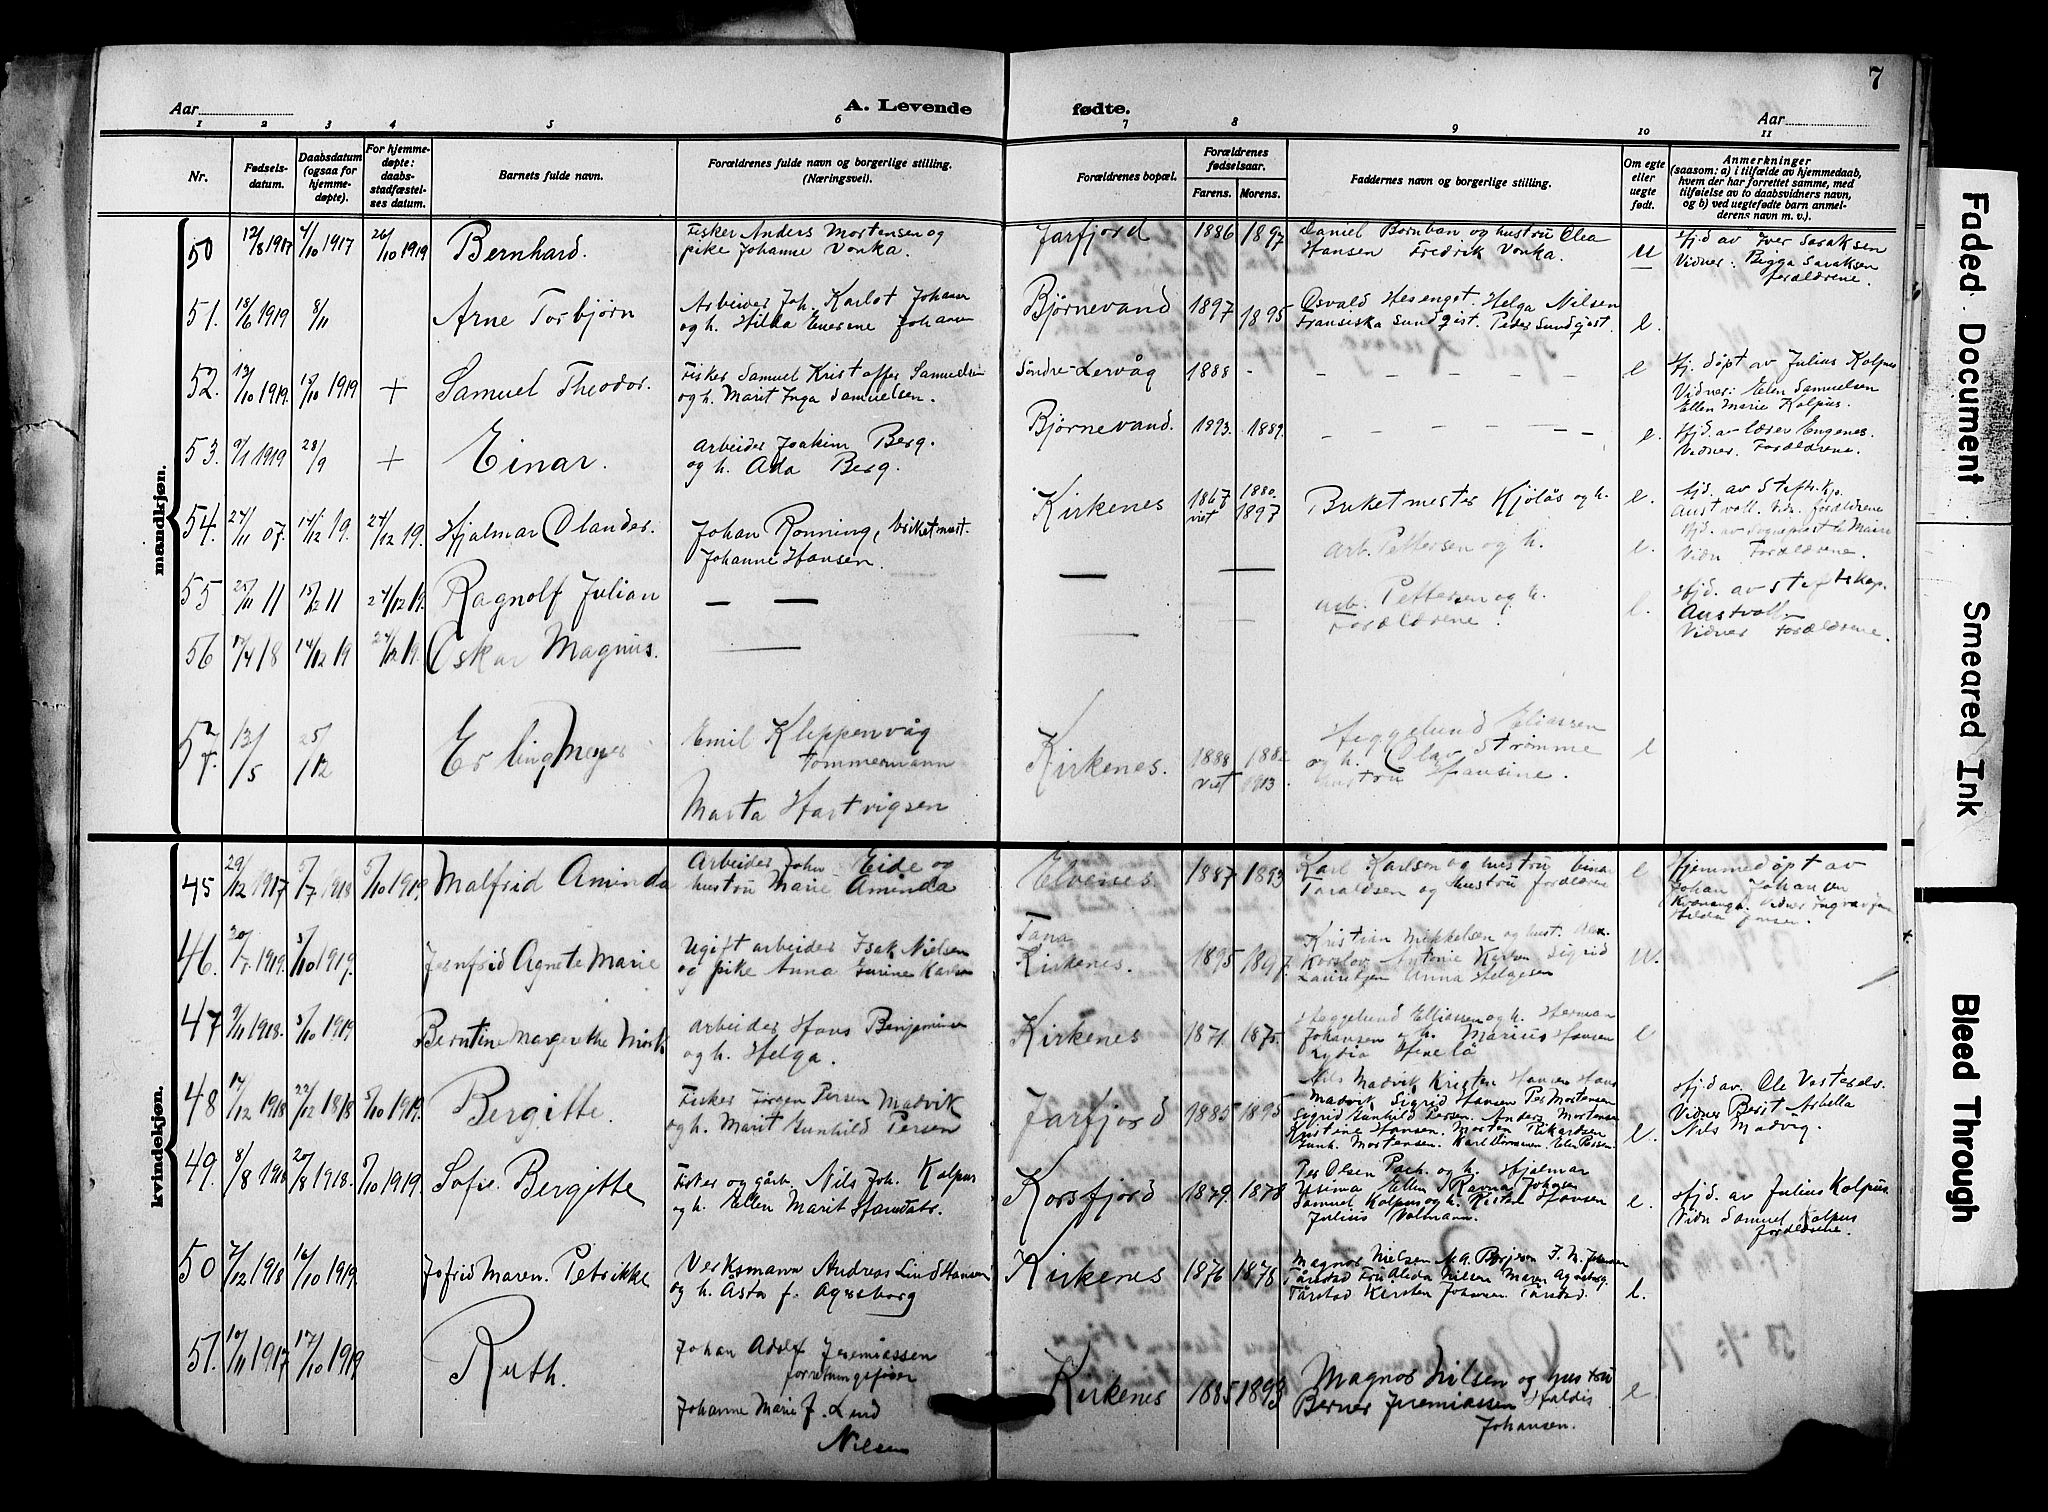 7
Aar
A. Levende fødte.
Aar
1 2 3 4 5 6 7 8 9 10 11
Nr.
Fødsels-
datum.
Daabsdatum
(ogsaa for
hjemme-
døpte).
For hjemme-
døpte:
daabs-
stadfæstel-
ses datum.
Barnets fulde navn.
Forældrenes fulde navn og borgerlige stilling.
(Næringsvei).
Forældrenes bopæl.
Forældrenes
fødselsaar.
Farens. Morens.
Faddernes navn og borgerlige stilling.
Om egte
eller
uegte
født.
Anmerkninger
(saasom: a) i tilfælde av hjemmedaab,
hvem der har forrettet samme, med
tilføielse av to daabsvidners navn,
og b) ved uegtefødte barn anmel-
derens navn m. v.).
mandkjøn.
50 12/8 1917 4/10 1917 26/10 1919 Bernhard.
Fisker Anders Mortensen og
pike Johanne Vonka.
Jarfjord 1886 1897
Daniel Bomban og hustru Olea
Hansen Fredrik Vonka.
u
Hjd av Iver Saraksen
Vidner: Bigga Saraksen
forældrene.
51. 18/6 1919 8/11 Arne Torbjørn
Arbeider Joh. Karlot Johan
og h. Hilda Johan
Bjørnevand 1897 1895
Osvald Hesenget. Helga Nilsen
Fransiska Sundqist. Peder Sundqist.
e.
52. 13/10 1919. 15/10 1919 + Samuel Theodor.
Fisker Samuel Kristoffer Samuelsen
og h. Marit Inga Samuelsen.
Søndre-Lervåg 1888 - - - - - - e
Hj. døpt av Julius Kolpus
Vidner: Elen Samuelsen
Ellen Marie Kolpus.
53. 9/1 1919 28/9 + Einar.
Arbeider Joakim Berg.
og h. Ada Berg.
Bjørnevand. 1893. 1889. - - - - - e.
Hjd. av lærer Engenes.
Vidner. Forældrene.
54. 24/11 07. 14/12 19. 24/12 19. Hjalmar Olander.
Johan Rønning,
Johanne Hansen.
Kirkenes 1867 1880.
viet 1897
Kjølås og h. e.
Arb. Pettersen og h. e.
Hjd. av Stiftskp.
Austvoll. Vidn. forældrene
Hjd. av
Vidn Forældrene.
55 25/11 11 11 24/12 19. Ragnolf Julian
— — — —
arb. Pettersen og h.
Forældrene. e.
Hjd. av Stiftskap.
Austvoll.
Vidner Forældrene.
56 17/4 18 14/12 19 24/12 19. Oskar Magnus.
57. 13/5 25/12 Erling Meyer
Emil Kleppenvåg
Tømmermann
Marta Hartvigsen
Kirkenes. 1888 1882
viet 1913
Heggelund Eliassen
og h. Olav Strømme
hustru Hansine.
e
kvindekjøn.
45 29/12 1917 5/7 1918 5/10 1919. Malfrid Aminda
Arbeider John Eide og
hustru Marie Aminda
Elvenes. 1887 1893
Karl Karlsen og hustru Einar
Taraldsen og hustru forældrene
e
Hjemmedøpt av
Johan Johansen
Vidner
Hilda Jensen.
46. 20/7 1919. 5/10 1919. Agnete Marie
Ugift arbeider Isak Nielsen
og pike Anna Gurine
Tana
Kirkenes. 1895 1897.
Kristian Mikkelsen og hust.
Antonie Karlsen Sigrid
Lauritzen Anna Helgesen
u.
47 9/11 1918. 5/10 1919 Berntine Margrethe
Arbeider Hans Benjaminsen
og h. Helga.
Kirkenes 1871. 1875.
Heggelund Elliassen og h. Herman
Johansen og h. Marius Hansen
Lydia
e
48 17/12 1918 22/12 1818 5/10 1919. Bergitte.
Fisker Jørgen Persen Madvik
og h. Marit Gunhild Persen
Jarfjord 1885 1895
Nils Madvik Kristen Hansen Hans
Madvik Sigrid Hansen Per Mortensen
Sigrid Gunhild Persen. Anders Mortensen
Kristine Hansen. Morten Rikardsen
Gunh. Mortensen. Karl
e.
Hjd av. Ole
Vidner Berit Arbella
Nils Madvig.
49. 8/8 1918 20/8 1918. 5/10 1919. Sofie Bergitte
Fisker og gårb. Nils Joh. Kolpus
og h. Ellen Marit
Korsfjord 1879. 1878
Per Olsen Pach. og h. Hjalmar
Usima Ellen Ravna Johansen
Samuel Kolpus og h. Hansen
Julius Valmann.
e.
Hjd. av Julius Kolpus.
Vidn Samuel Kolpus
forældrene.
50 7/12 1918 16/10 1919. Jofrid Maren. Petrikke
Verksmann Andreas Lind Hansen
og h. Åsta f. Agersborg
Kirkenes 1876 1878
Magnor Nielsen
Tårstad Fru Alida Nilsen Maren Agersborg
Tårstad Kirsten Johansen Tårstad.
e.
51. 10/11 1917 17/10 1919 Ruth.
Johan Adolf Jeremiassen
forretningsfører
Johanne Marie f. Lund
Nilsen
Kirkenes 1885 1893
Magnor Nilsen og hustru
Berner Jeremiassen Haldis
Johansen.
e.
Faded Document
Smeared Ink
Bleed Through